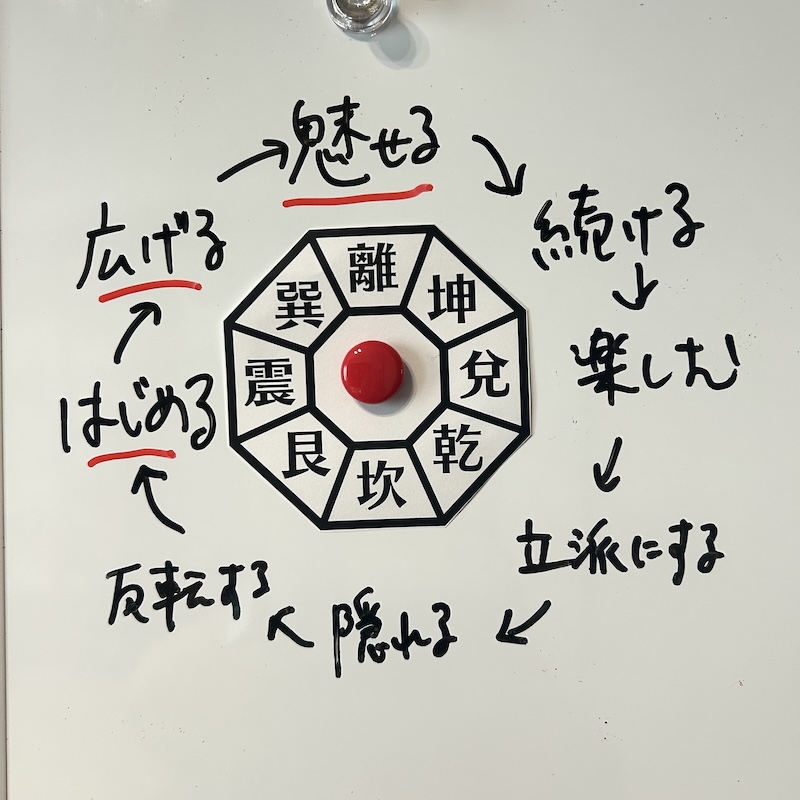 魅せる
続ける
楽しむ
立派にする
隠れる
反転する
はじめる
広げる
離
坤
兌
乾
坎
艮
震
巽